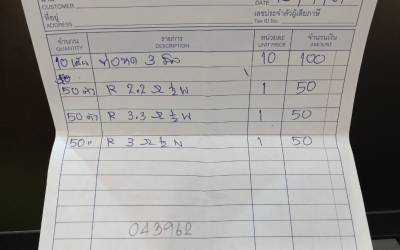 CUSTOMER
ที่อยู่
ADDRESS
เลขประจำตัวผู้เสียภาษี
Tax ID No.
จำนวน รายการ หน่วยละ จำนวนเงิน
QUANTITY DESCRIPTION UNIT PRICE AMOUNT
10 เส้น ท่อหด 3 มิล 10 100
50 ตัว R 2.2 Ω ½ W 1 50
50 ตัว R 3.3 Ω ½ W 1 50
50 " R 3 Ω ½ W 1 50
043962